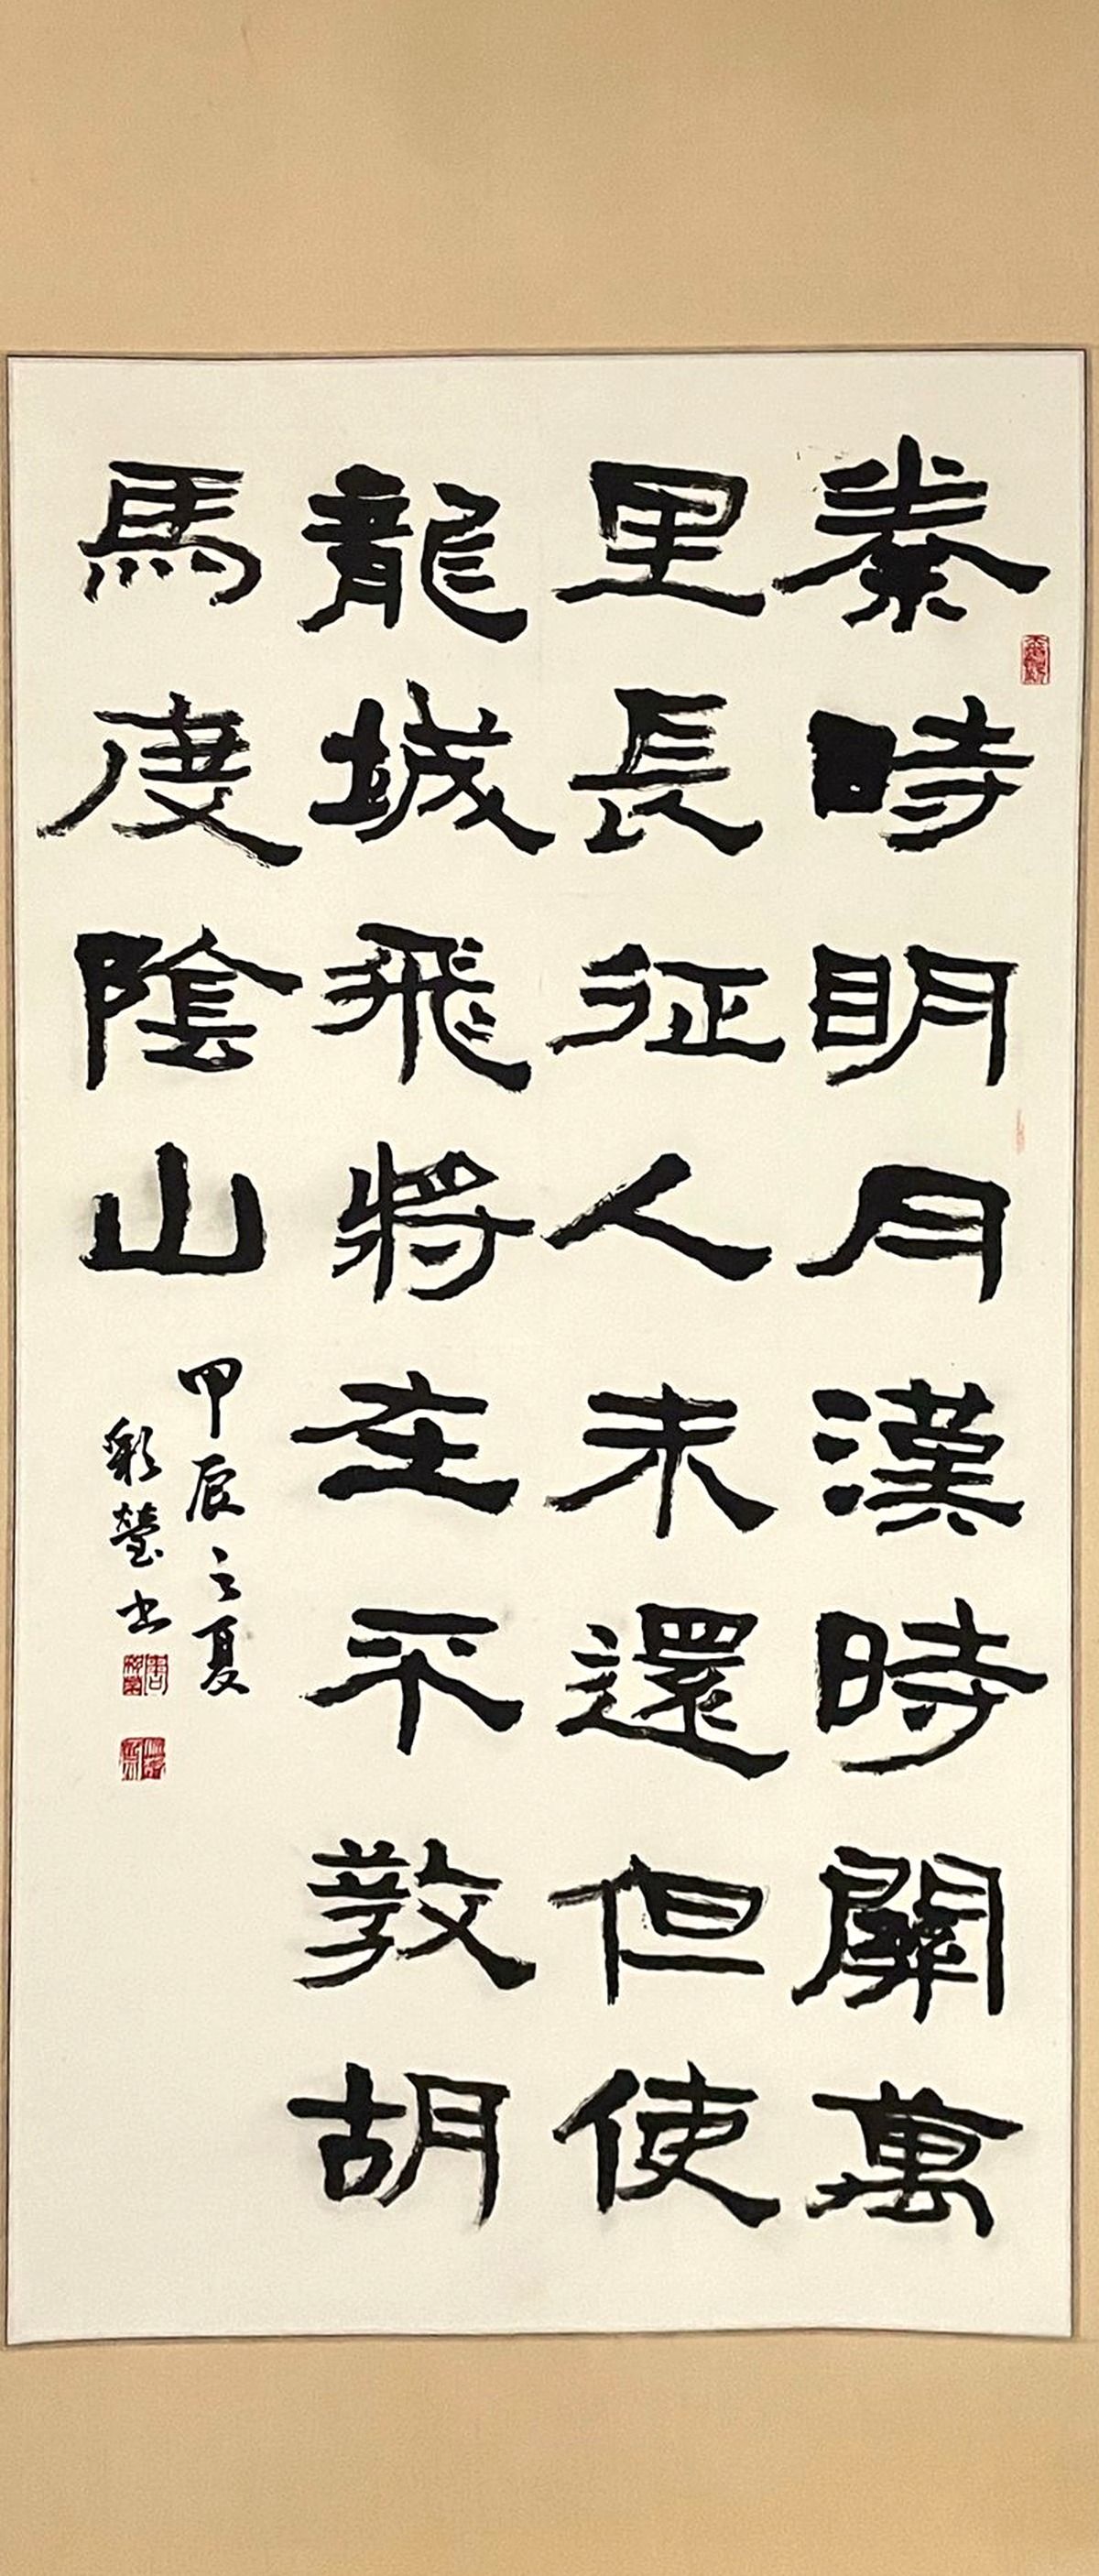 秦時明月漢時關萬
里長征人未還但使
龍城飛將在不教胡
馬度陰山
甲辰之夏
彩瑩書